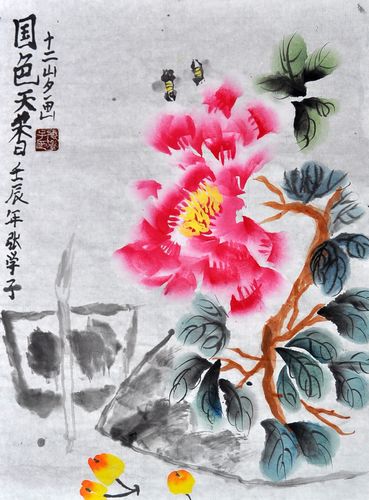 国色天香
壬辰年张学子
十二岁画